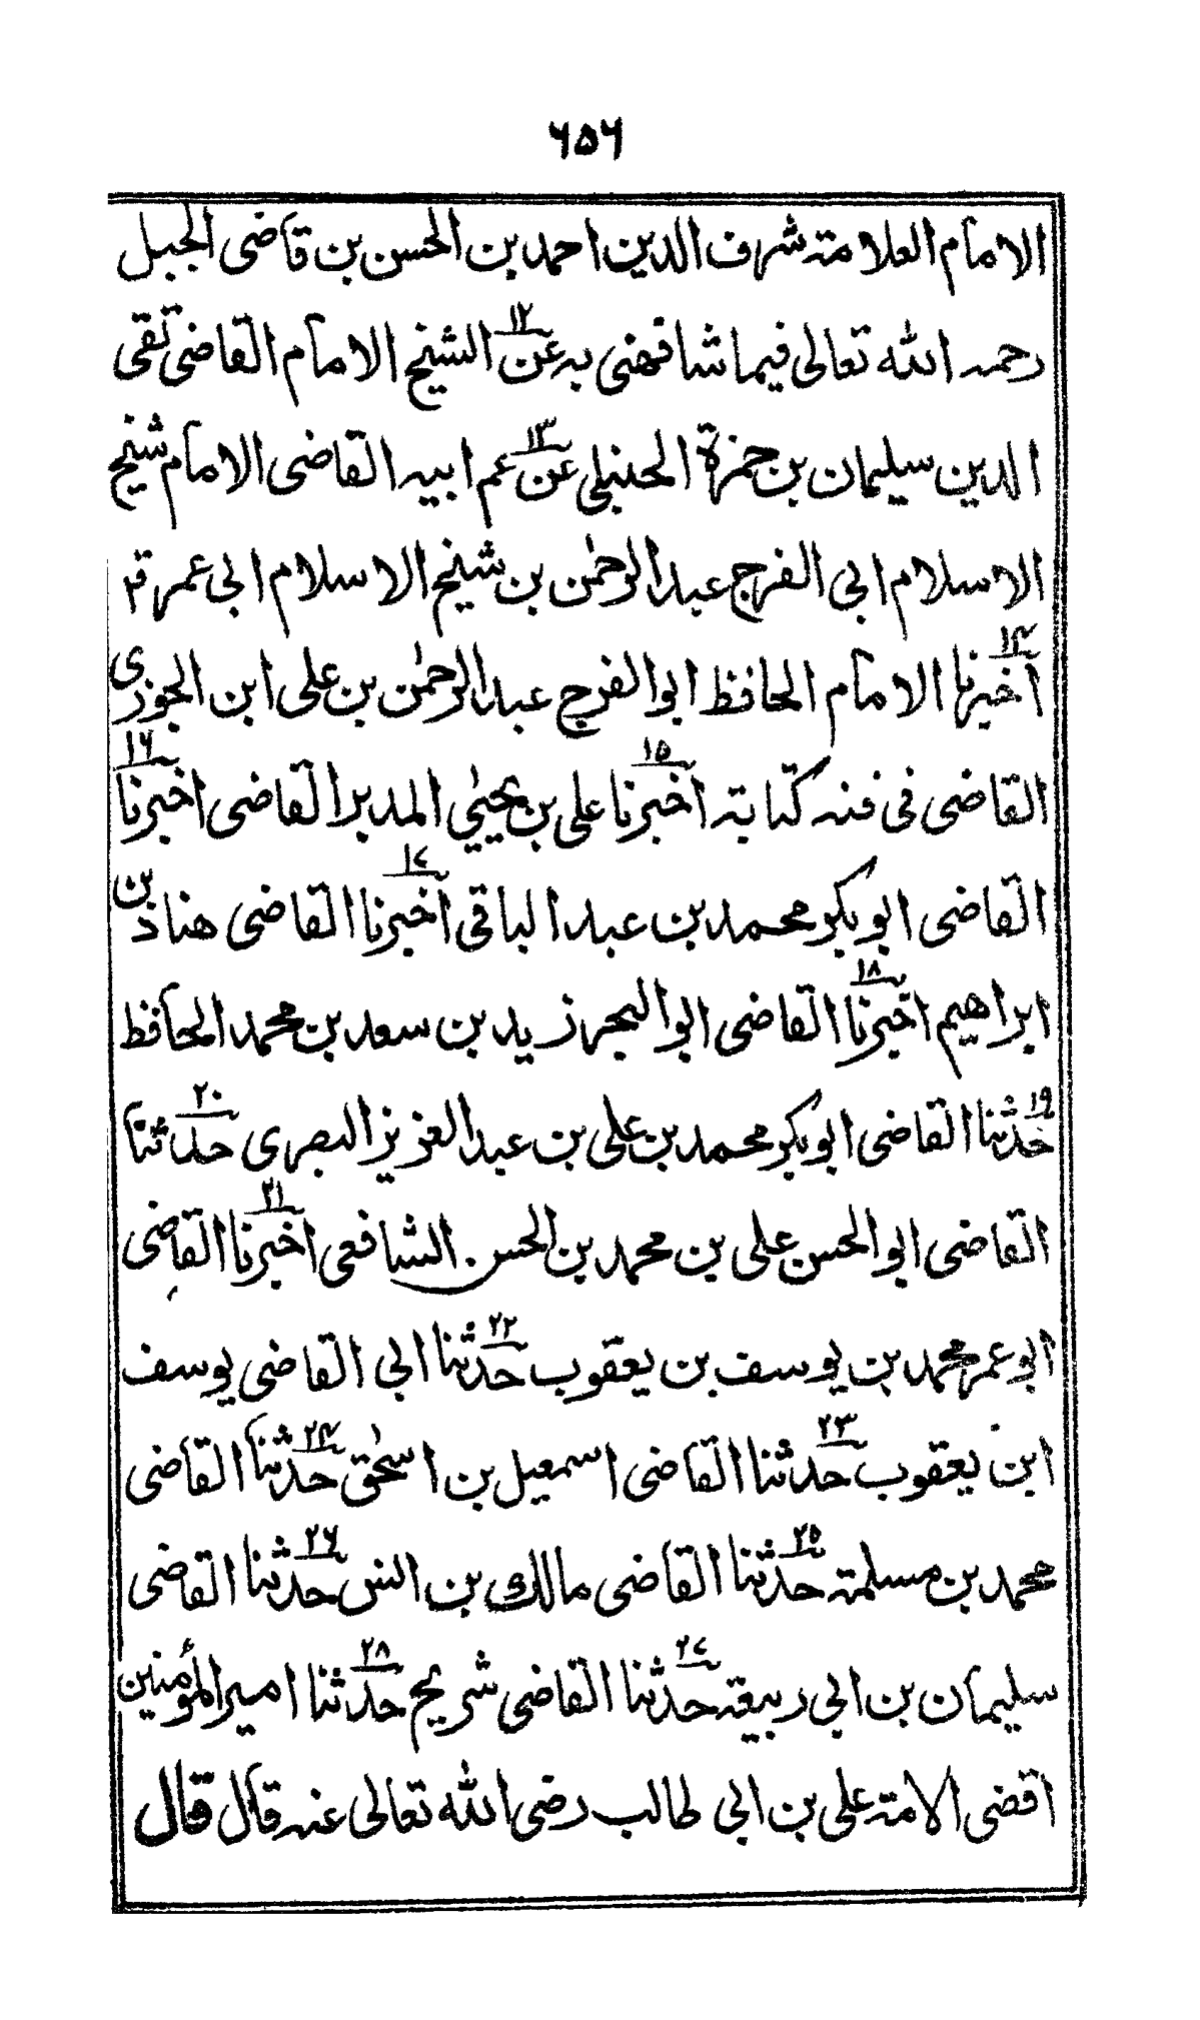 ۶۵۶
الامام العلامة شرف الدين احمد بن الحسن بن قاضى الجبل
رحمه الله تعالى فيما شافهنى به ۱۲ عن الشيخ الامام القاضى تقى
الدين سليمان بن حمزة الحنبلى ۱۳ عن عم ابيه القاضى الامام شيخ
الاسلام ابى الفرج عبد الرحمٰن بن شيخ الاسلام ابى عمر
۱۴ اخبرنا الامام الحافظ ابو الفرج عبد الرحمٰن بن على ابن الجوزى
القاضى فى فنه كتابته ۱۵ اخبرنا على بن يحيىٰ المدير القاضى ۱۶ اخبرنا
القاضى ابو بكر محمد بن عبد الباقى ۱۷ اخبرنا القاضى هناد بن
ابراهيم ۱۸ اخبرنا القاضى ابو البحر زيد بن سعد بن محمد الحافظ
۱۹ حدثنا القاضى ابو بكر محمد بن على بن عبد العزيز البصرى ۲۰ حدثنا
القاضى ابو الحسن على بن محمد بن الحسن الشافعى ۲۱ اخبرنا القاضى
ابو عمر محمد بن يوسف بن يعقوب ۲۲ حدثنا ابى القاضى يوسف
ابن يعقوب ۲۳ حدثنا القاضى اسمعيل بن اسحٰق ۲۴ حدثنا القاضى
محمد بن مسلمة ۲۵ حدثنا القاضى مالك بن انس ۲۶ حدثنا القاضى
سليمان بن ابى ربيعة ۲۷ حدثنا القاضى شريح ۲۸ حدثنا امير المؤمنين
اقضى الامة على بن ابى طالب رضى الله تعالى عنه قال قال